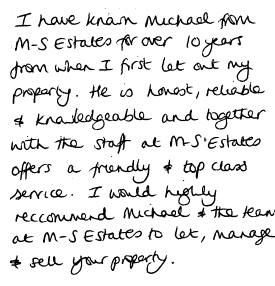 I have known Michael from
M-S Estates for over 10 years
from when I first let out my
property. He is honest, reliable
& knowledgeable and together
with the staff at M-S Estates
offers a friendly & top class
service. I would highly
reccommend Michael & the team
at M-S Estates to let, manage
& sell your property.